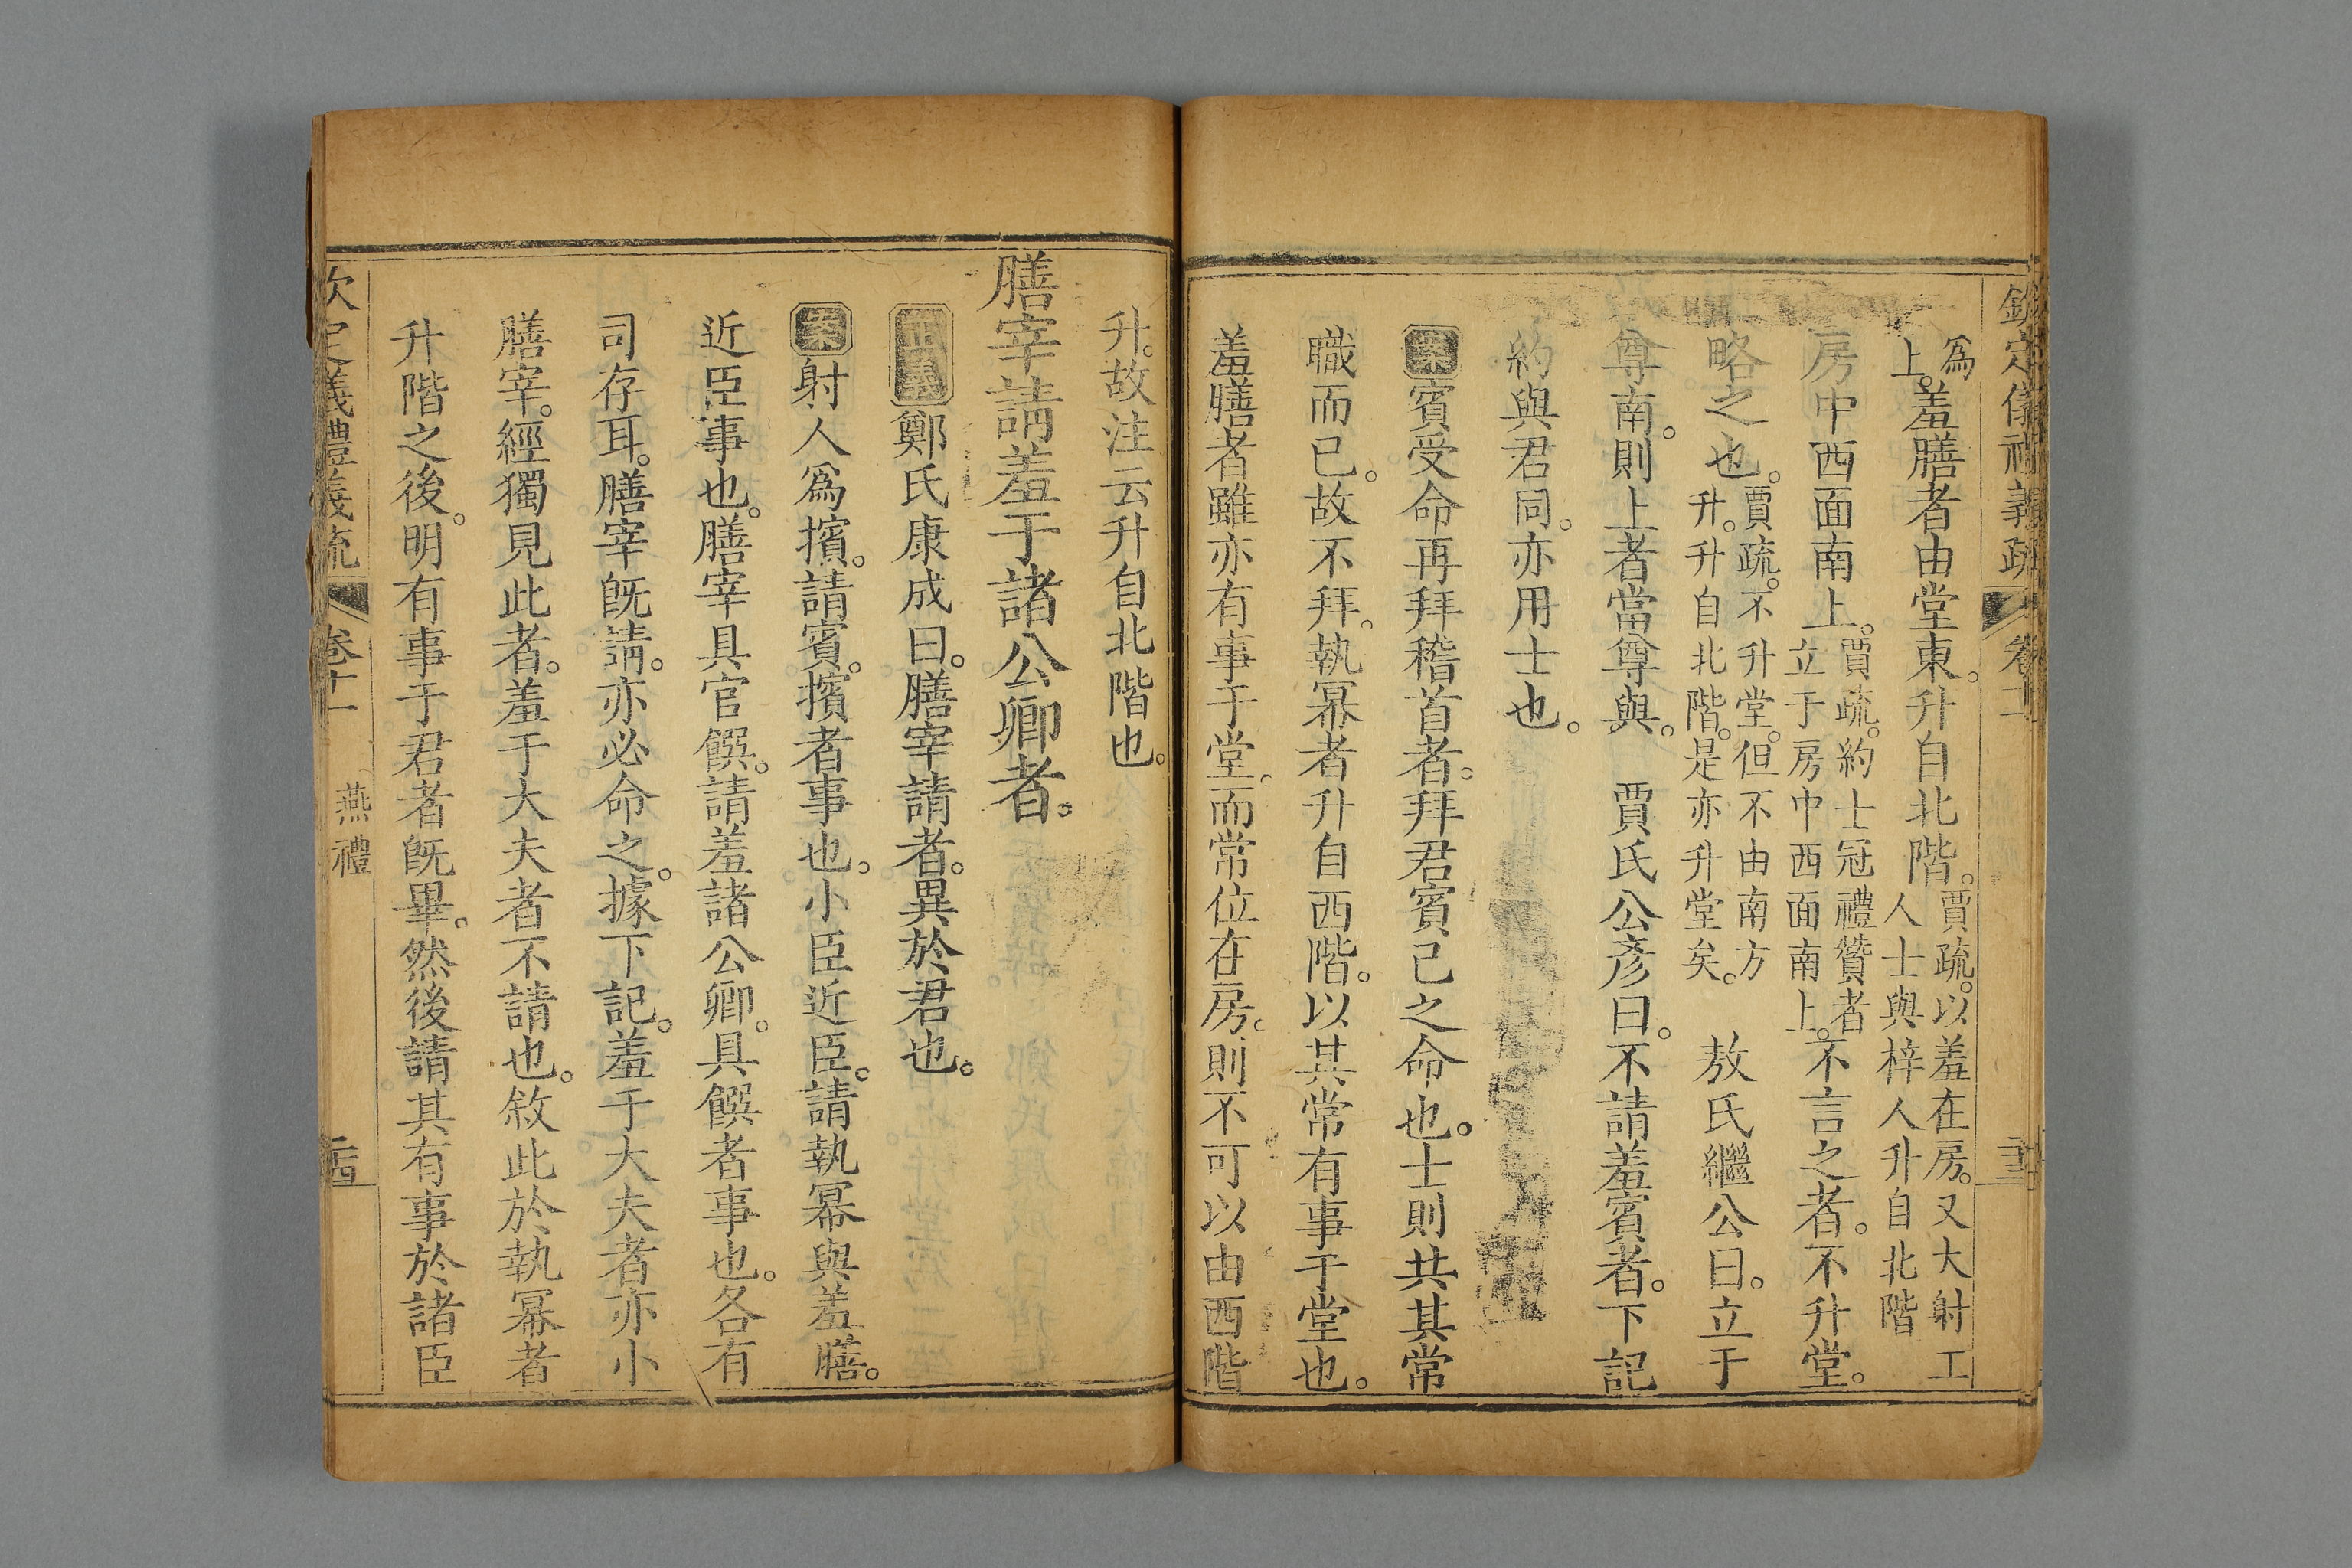 欽定儀禮義疏 卷十一
爲上。羞膳者由堂東。升自北階。賈疏。以羞在房。又大射工人士與梓人升自北階
房中西面南上。賈疏。約士冠禮贊者立于房中西面南上。不言之者。不升堂。
略之也。賈疏。不升堂。但不由南方升。升自北階。是亦升堂矣。 敖氏繼公曰。立于
尊南。則上者當尊與。 賈氏公彥曰。不請羞賓者。下記
約與君同。亦用士也。
案賓受命再拜稽首者。拜君賓己之命也。士則共其常
職而已。故不拜。執冪者升自西階。以其常有事于堂也。
羞膳者雖亦有事于堂。而常位在房。則不可以由西階
升。故注云升自北階也。
膳宰請羞于諸公卿者。
正義鄭氏康成曰。膳宰請者。異於君也。
案射人爲擯。請賓。擯者事也。小臣近臣。請執冪與羞膳。
近臣事也。膳宰具官饌。請羞諸公卿。具饌者事也。各有
司存耳。膳宰旣請。亦必命之。據下記。羞于大夫者亦小
膳宰。經獨見此者。羞于大夫者不請也。敘此於執冪者
升階之後。明有事于君者旣畢。然後請其有事於諸臣
欽定儀禮義疏 卷十一 燕禮